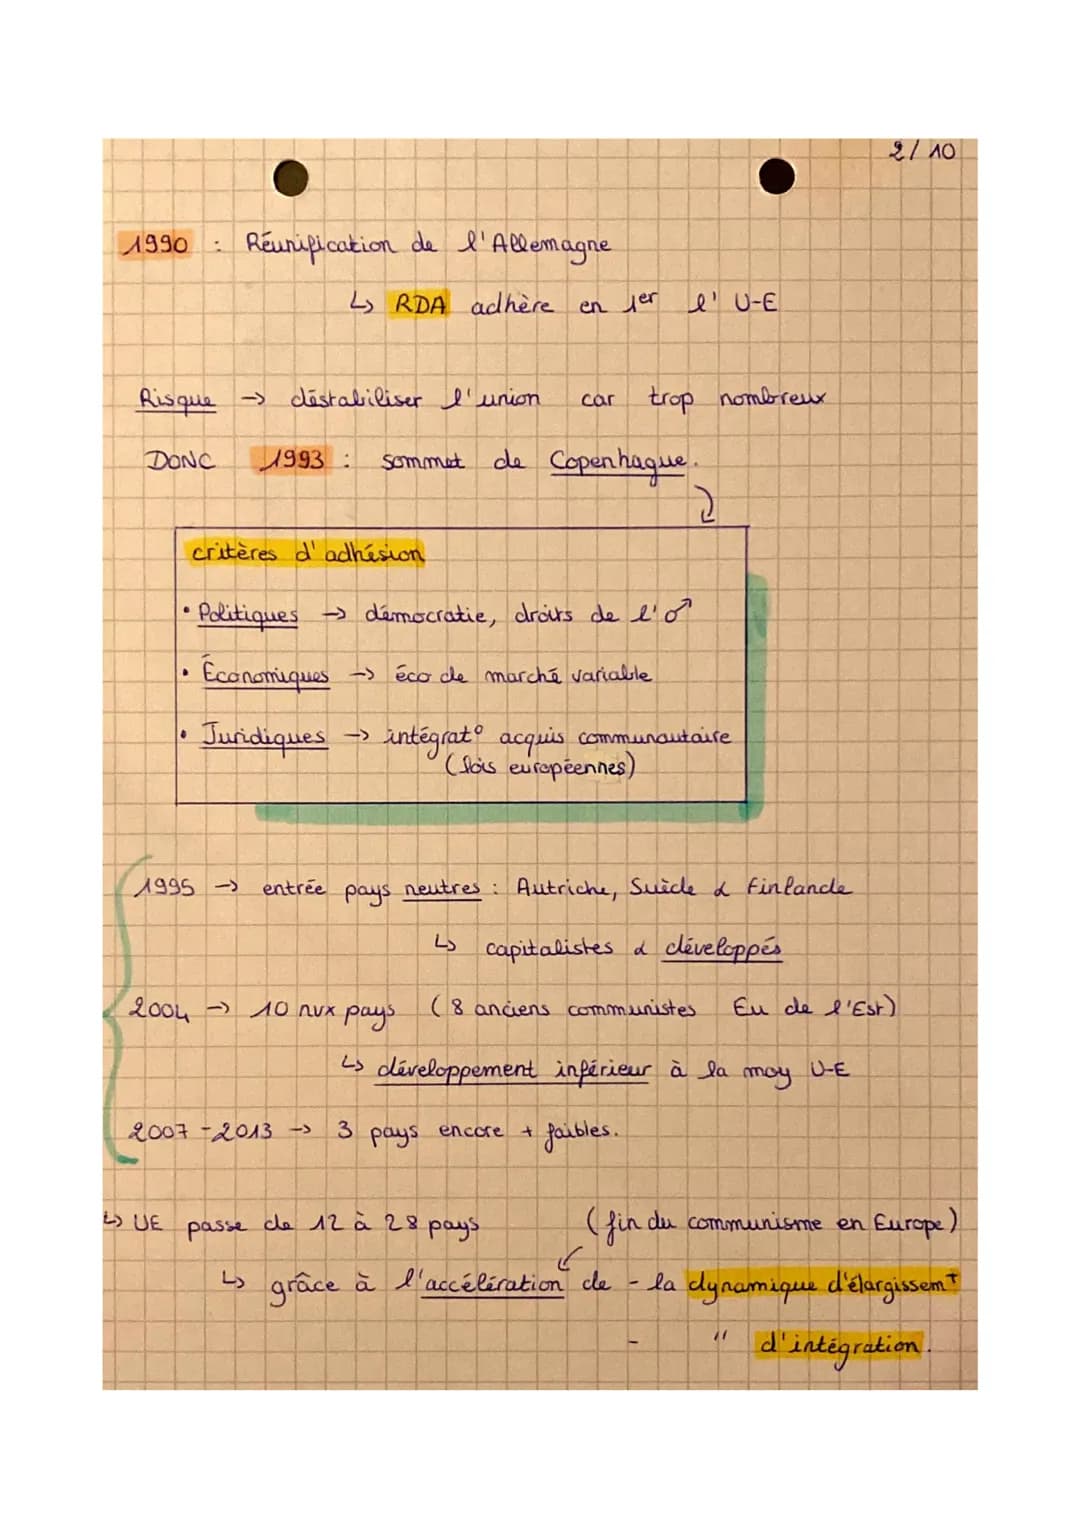 2/10
1990 : Réunification de l'Allemagne
↳ RDA adhère en 1er l' U-E
Risque → déstabiliser l'union car trop nombreux
DONC 1993 : sommet de Copenhague.
critères d'adhésion
• Politiques → démocratie, droits de l'♂
• Économiques → éco de marché variable
• Juridiques → intégrat° acquis communautaire
(lois européennes)
1995 → entrée pays neutres : Autriche, Suède & Finlande
↳ capitalistes & développés
2004 → 10 nvx pays (8 anciens communistes Eu de l'Est)
↳ développement inférieur à la moy U-E
2007-2013 → 3 pays encore + faibles.
↳ UE passe de 12 à 28 pays (fin du communisme en Europe)
↳ grâce à l'accélération de - la dynamique d'élargissemt
- " d'intégration.